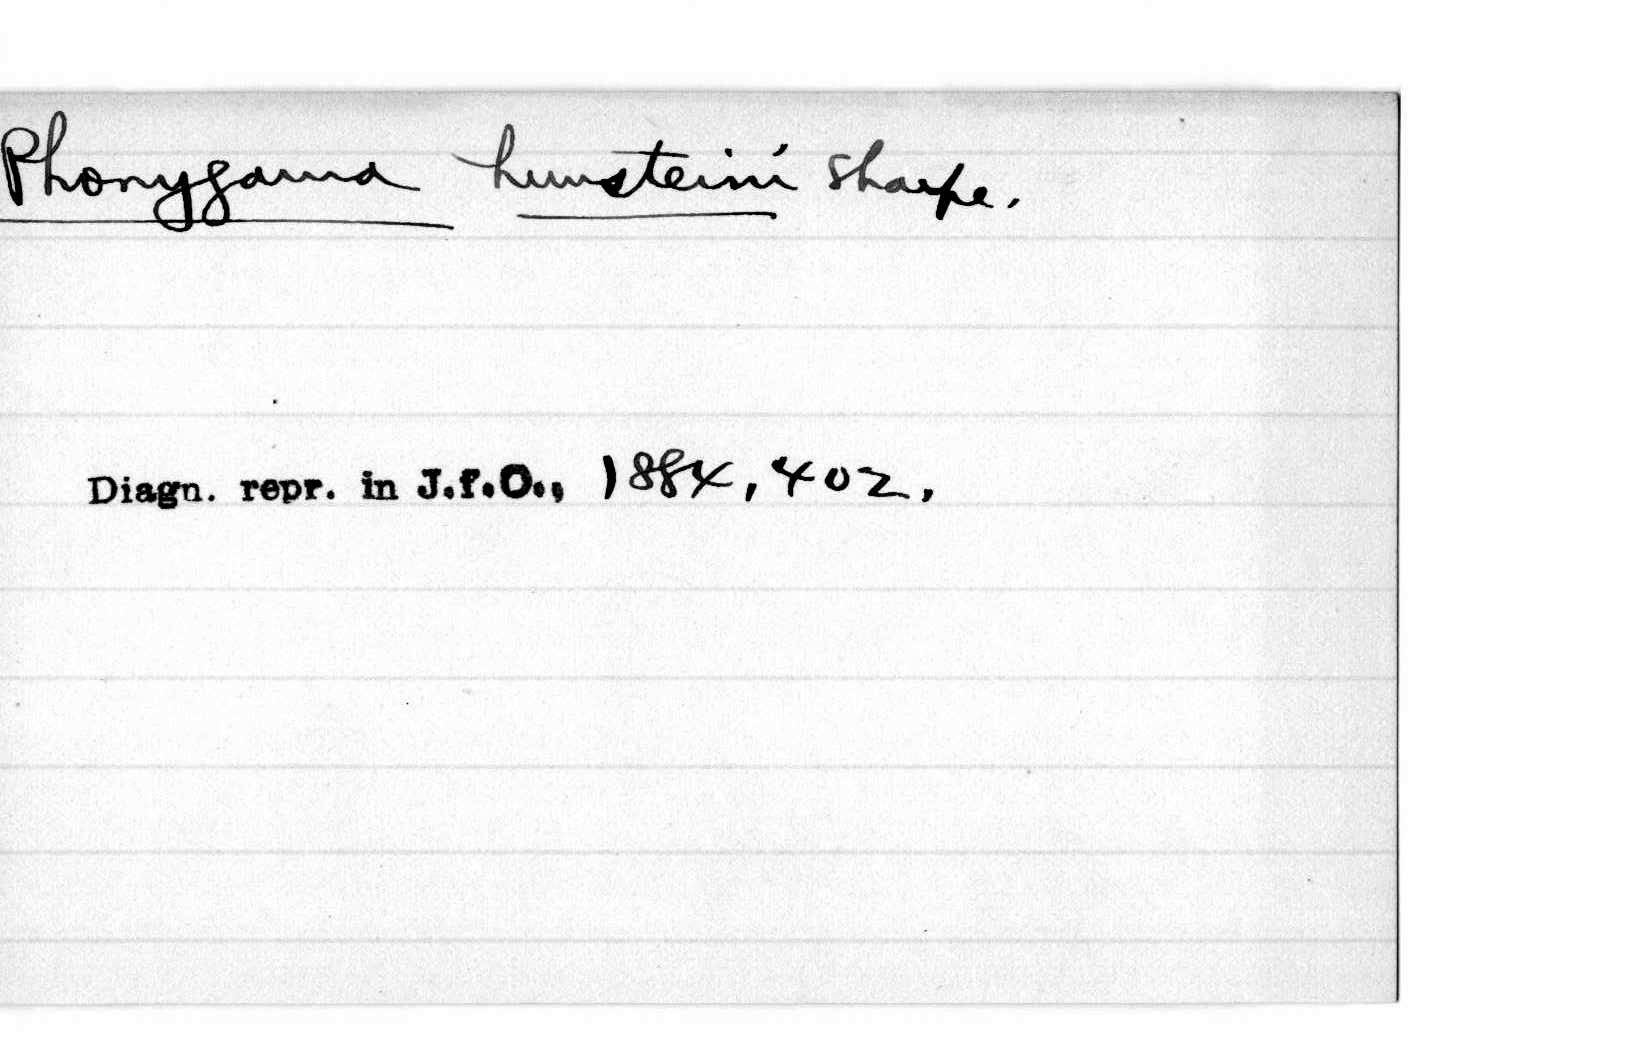 Phonygama hunsteini Sharpe.
Diagn. repr. in J.f.O., 1884, 402.